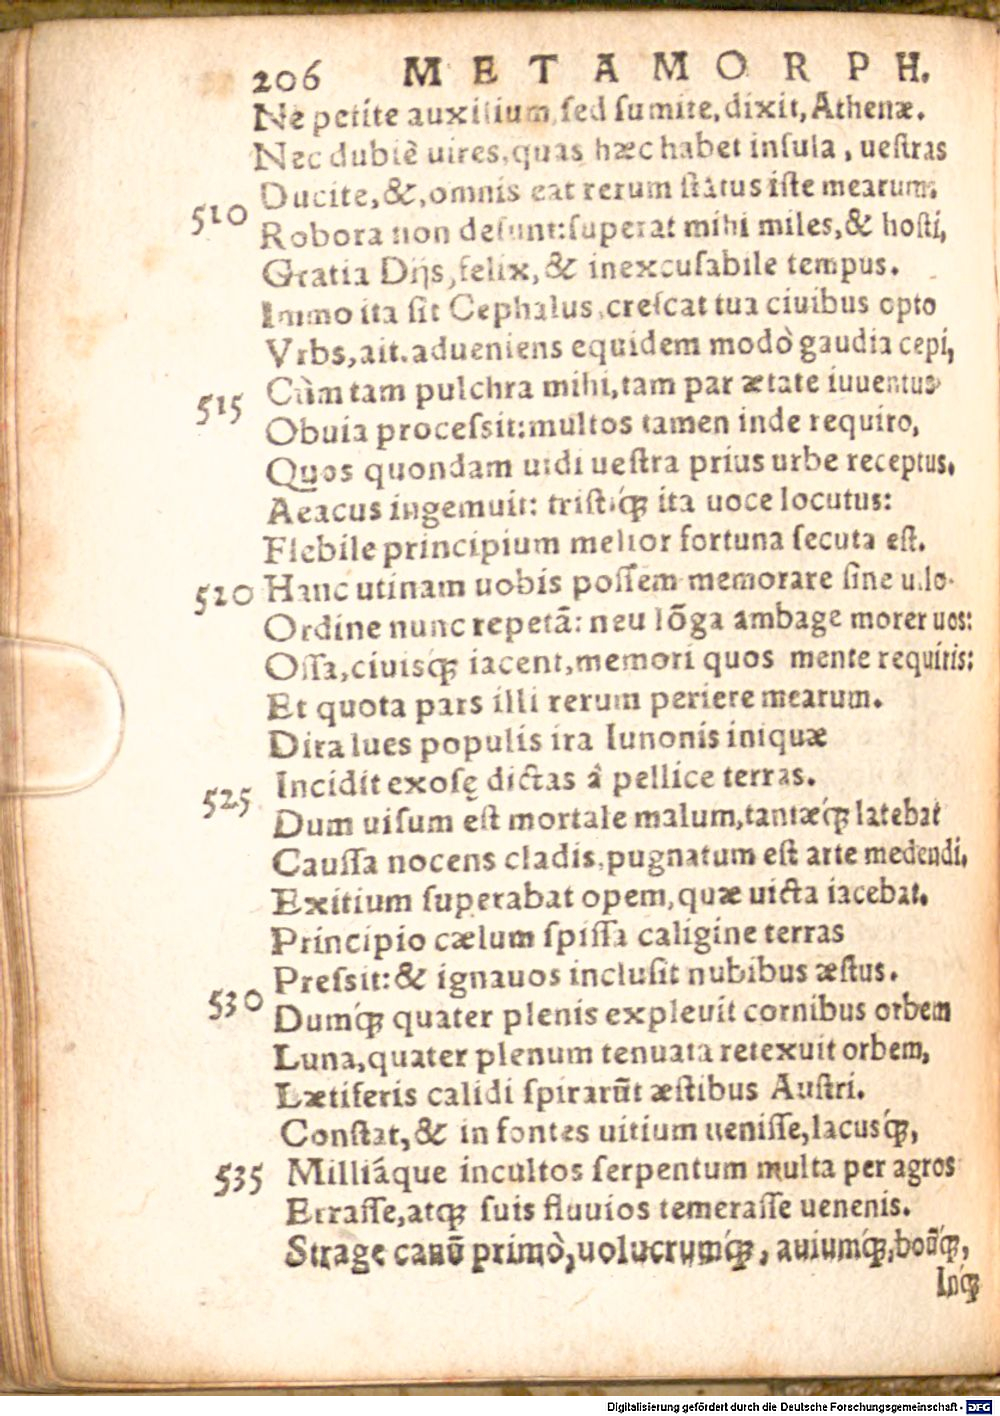 206 METAMORPH.
Ne petite auxilium, sed sumite, dixit, Athenæ.
Nec dubiè uires, quas hæc habet insula, uestras
Ducite, &, omnis eat rerum status iste mearum.
510 Robora non desunt: superat mihi miles, & hosti,
Gratia Dijs, felix, & inexcusabile tempus.
Immo ita sit Cephalus, crescat tua ciuibus opto
Vrbs, ait. adueniens equidem modò gaudia cepi,
Cùm tam pulchra mihi, tam par ætate iuuentus
515 Obuia processit: multos tamen inde requiro,
Quos quondam uidi uestra prius urbe receptus.
Aeacus ingemuit: tristiq́; ita uoce locutus:
Flebile principium melior fortuna secuta est.
Hanc utinam uobis possem memorare sine ulo.
520 Ordine nunc repetã: neu lõga ambage morer uos:
Ossa, cinisq́; iacent, memori quos mente requiritis:
Et quota pars illi rerum periere mearum.
Dira lues populis ira Iunonis iniquæ
Incidit exosę dictas â pellice terras.
525 Dum uisum est mortale malum, tantæq́; latebat
Caussa nocens cladis, pugnatum est arte medendi,
Exitium superabat opem, quæ uicta iacebat.
Principio cælum spissa caligine terras
Pressit: & ignauos inclusit nubibus æstus.
530 Dumq́; quater plenis expleuit cornibus orbem
Luna, quater plenum tenuata retexuit orbem,
Lætiferis calidi spirarũt æstibus Austri.
Constat, & in fontes uitium uenisse, lacusq́;,
535 Milliáque incultos serpentum multa per agros
Errasse, atq; suis fluuios temerasse uenenis.
Strage canũ primò, uolucrumq́;, auiumq́;, boũq́;,
Inq́;
Digitalisierung gefördert durch die Deutsche Forschungsgemeinschaft - DFG